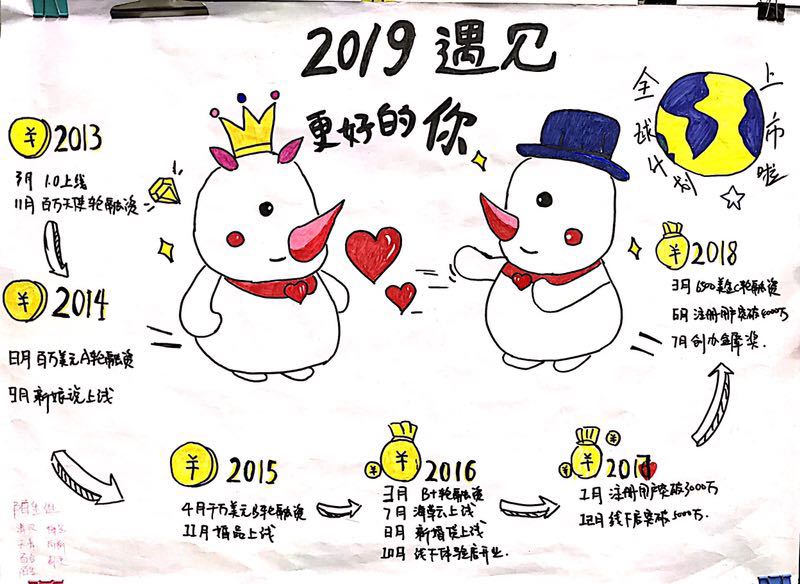 2019 遇见
更好的你
全球计划
上市啦
¥ 2013
3月 1.0上线
11月 百万天使轮融资
¥ 2014
百万美元A轮融资
9月 新娘说上线
¥ 2015
4月 千万美元B轮融资
11月 婚品上线
¥ 2016
3月 B+轮融资
7月 海草云上线
新婚贷上线
10月 线下体验店开业.
¥ 2017
1月 注册用户突破3000万
12月 线下店突破5000万.
¥ 2018
3月 6500美金C轮融资
6月 注册用户突破
7月 创办金犀奖.
陌生